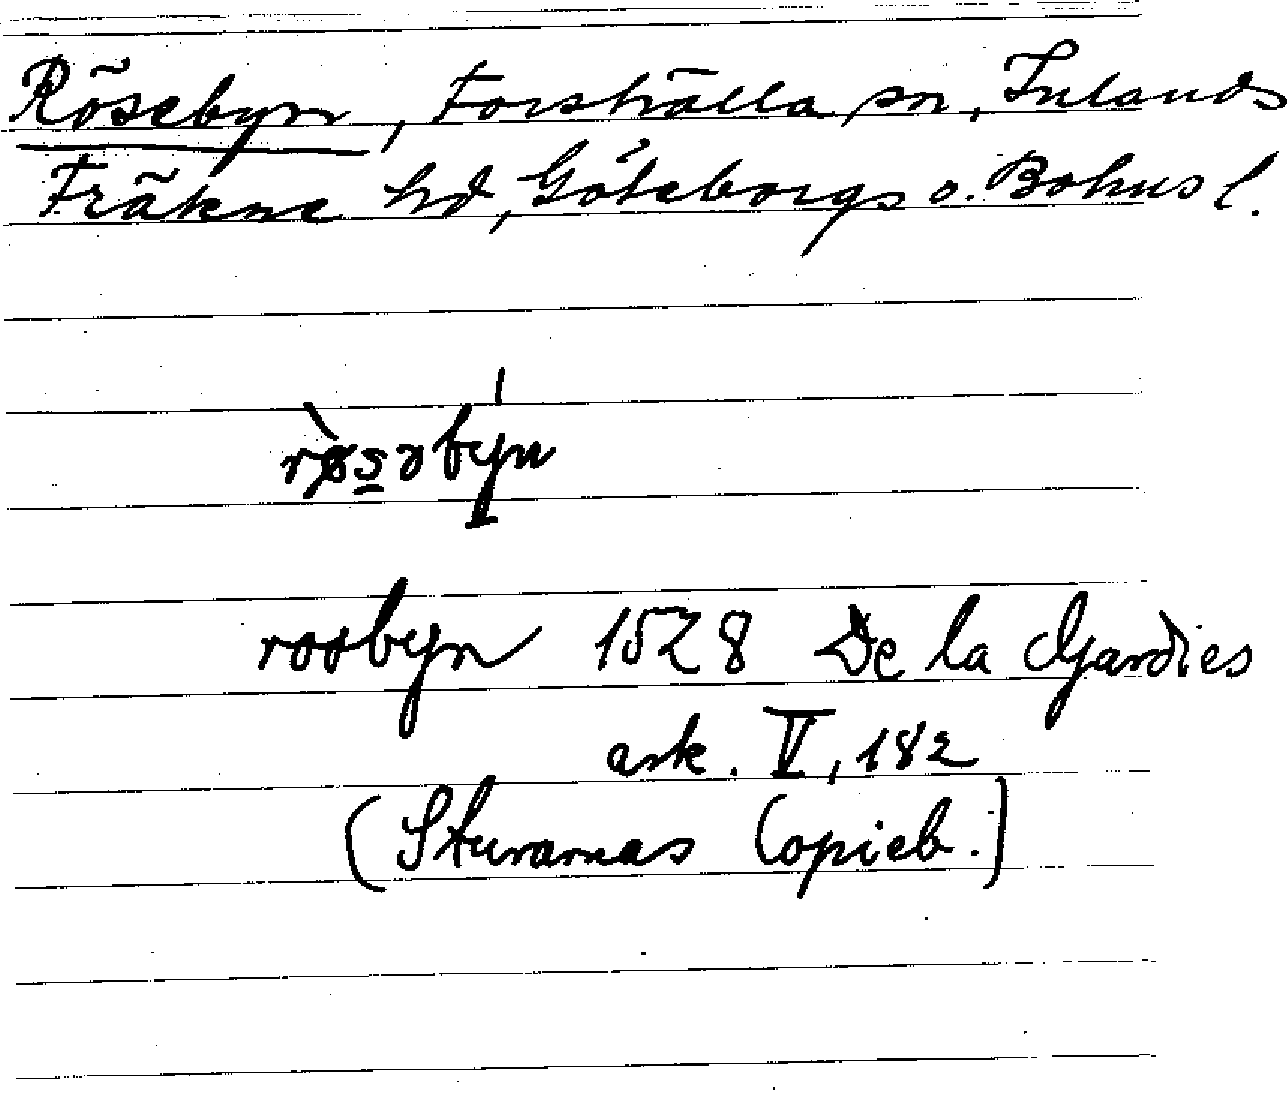 Rösebyn, Forshälla sn, Inlands
Fräkne hd, Göteborgs o. Bohus l.
rø̀səbýn
roobyn 1528 De la Gardies
ark. V, 182
(Sturarnas Copieb.)